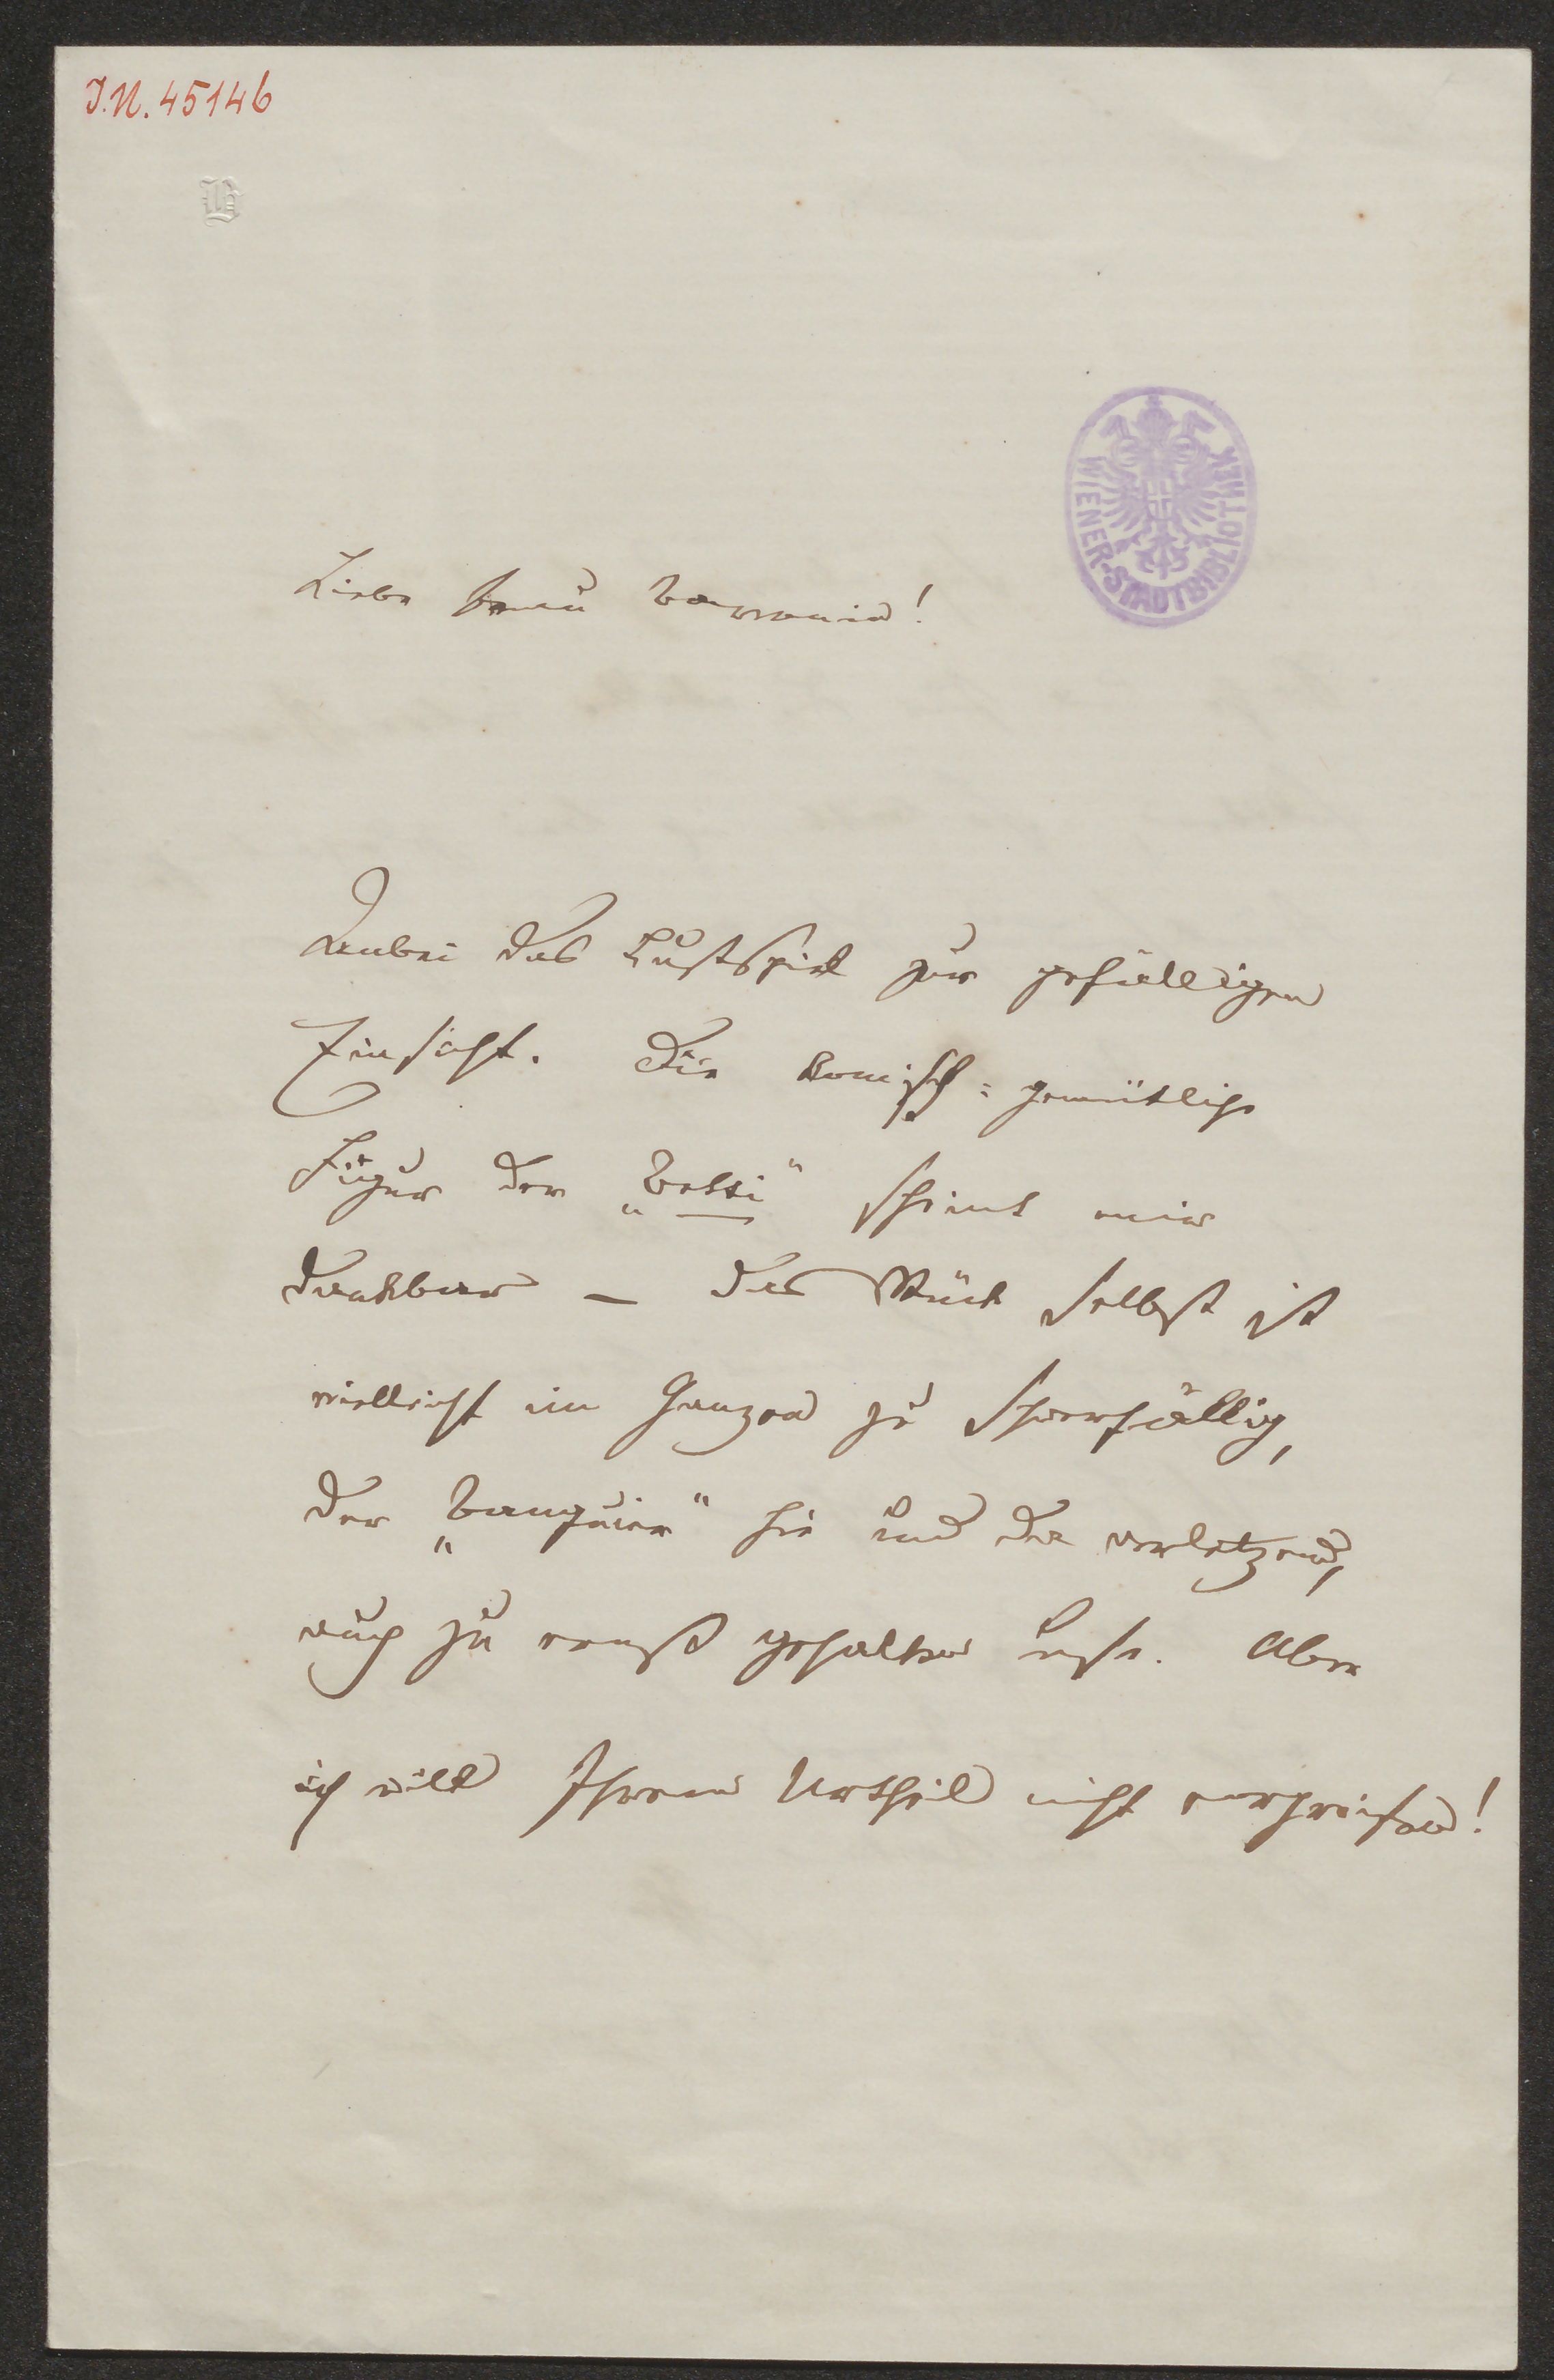 J.N. 45146
B
WIENER-STADTBIBLIOTHEK
Liebe Frau Baronin!
Anbei das Lustspiel zur gefälligen
Einsicht. Die komisch-gemütliche
Figur der „Betti" scheint mir
dankbar – das Stück selbst ist
vielleicht im Ganzen zu schwerfällig,
der „Banquier" hie und da verletzend,
auch zu ernst gehalten usw. Aber
ich will Ihrem Urtheil nicht vorgreifen!